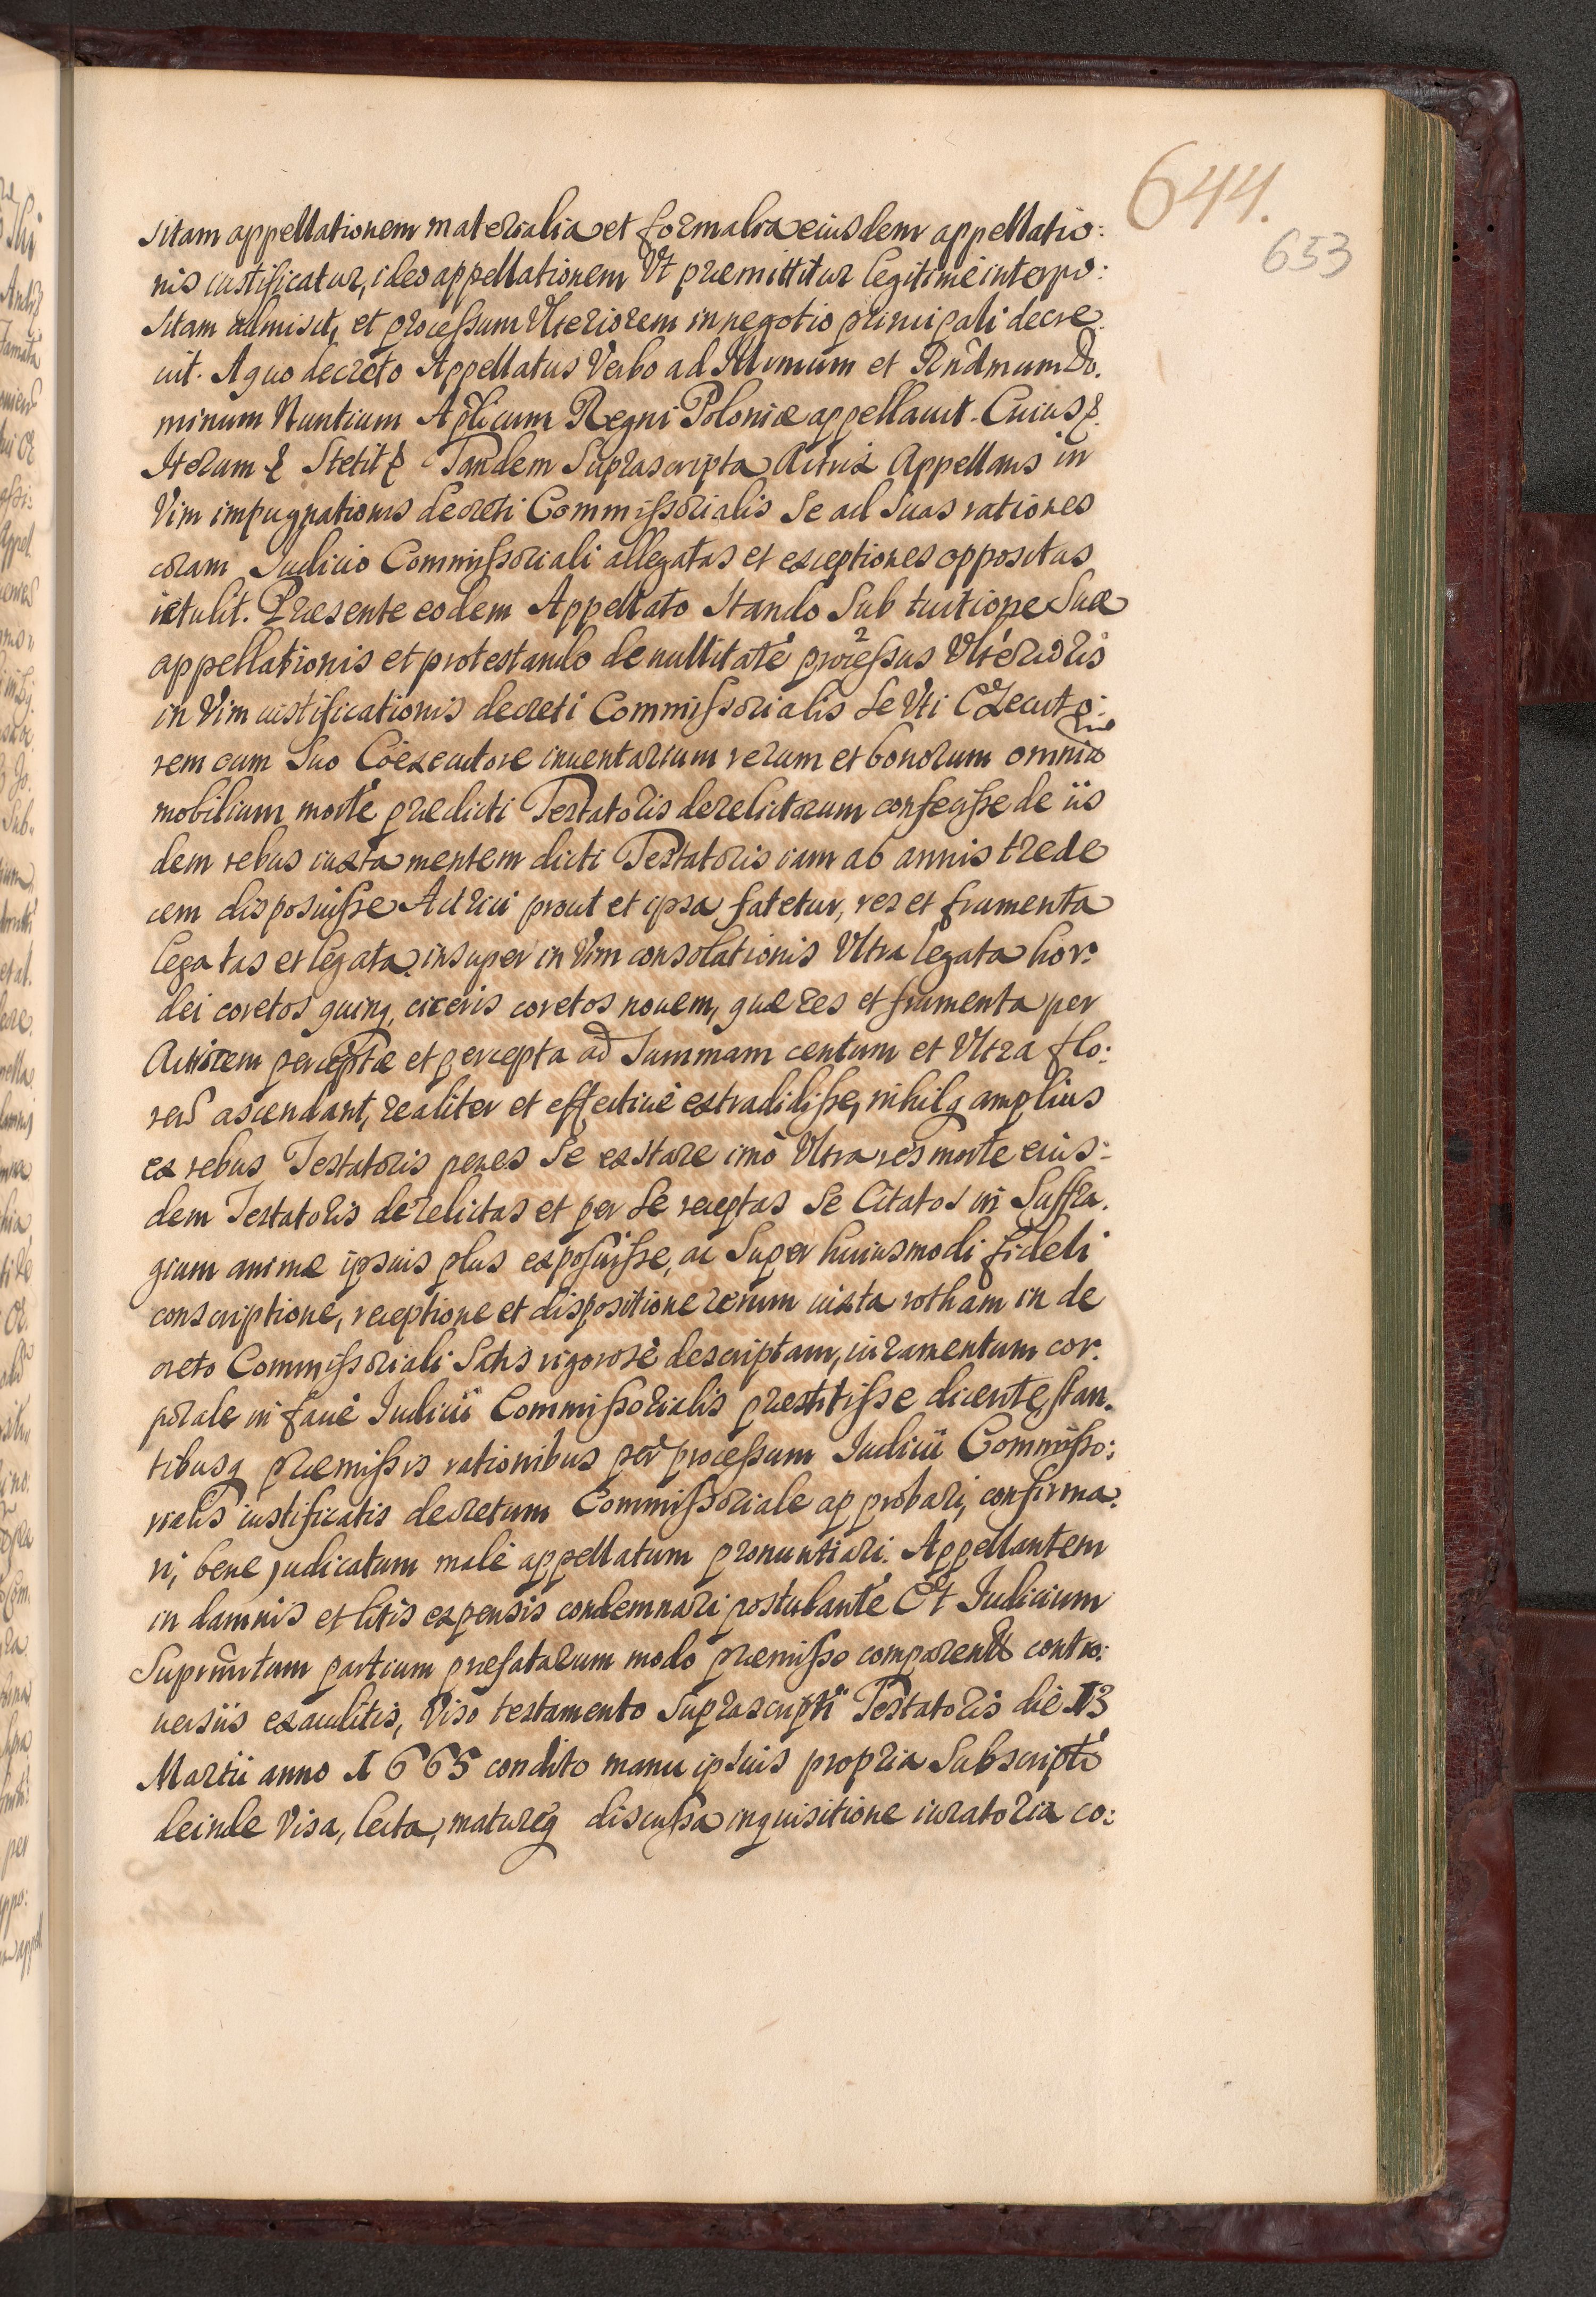 644.
653
sitam appellationem materialia et formalia eiusdem appellatio:
nis iustificatur, ideo appellationem Vt præmittitur legitimè interpo:
sitam admisit, et processum Vlteriorem in negotio principali decre
uit. A quo decreto Appellatus Verbo ad Illmum et Rndmum Do.
minum Nuntium Aplicum Regni Poloniæ appellauit. Cuius &.
Iterum & Stetit & Tandem Suprascripta Actrix Appellans in
Vim impugnationis decreti Commissorialis Se ad Suas rationes
coram Iudicio Commissoriali allegatas et exceptiones oppositas
retulit. Præsente eodem Appellato Stando Sub tuitione Suæ
appellationis et protestando de nullitate processus Vlterioris
in Vim iustificationis decreti Commissorialis Se Vti Executo:
rem cum Suo Coexecutore inuentarium rerum et bonorum omniū
mobilium morte prædicti Testatoris derelictorum confecisse de iis
dem rebus iuxta mentem dicti Testatoris iam ab annis trede
cem disposuisse Actrici prout et ipsa fatetur, res et frumenta
legatas et legata, insuper in Vim consolationis Vltra legata hor:
dei coretos quinq, ciceris coretos nouem, quæ res et frumenta per
Actricem perceptæ et percepta ad Summam centum et Vltra flo:
ren ascendant, realiter et effectiuè extradidisse, nihilq amplius
ex rebus Testatoris penes Se exstare imò Vltra res morte eius:
dem Testatoris derelictas et per Se receptas Se Citatos in Suffra.
gium animæ ipsius plus exposuisse, ac Super huiusmodi fideli
conscriptione, receptione et dispositione rerum iuxta rotham in de
creto Commissoriali Satis rigorosè descriptam, iuramentum cor:
porale in facie Iudicii Commissorialis præstitisse dicente, stan.
tibusq præmissis rationibus per processum Iudicii Commisso:
rialis iustificatis decretum Commissoriale approbari, confirma.
ri, bene judicatum malè appellatum pronuntiari. Appellantem
in damnis et litis expensis condemnari postulante Et Iudicium
Suprmtum partium præfatarum modo præmisso comparent contro:
uersiis exauditis, Viso testamento Suprascripti Testatoris die 13
Martii anno 1665 condito manu ipsius propria Subscripto
deinde Visa, lecta, matureq discussa inquisitione iuratoria co: